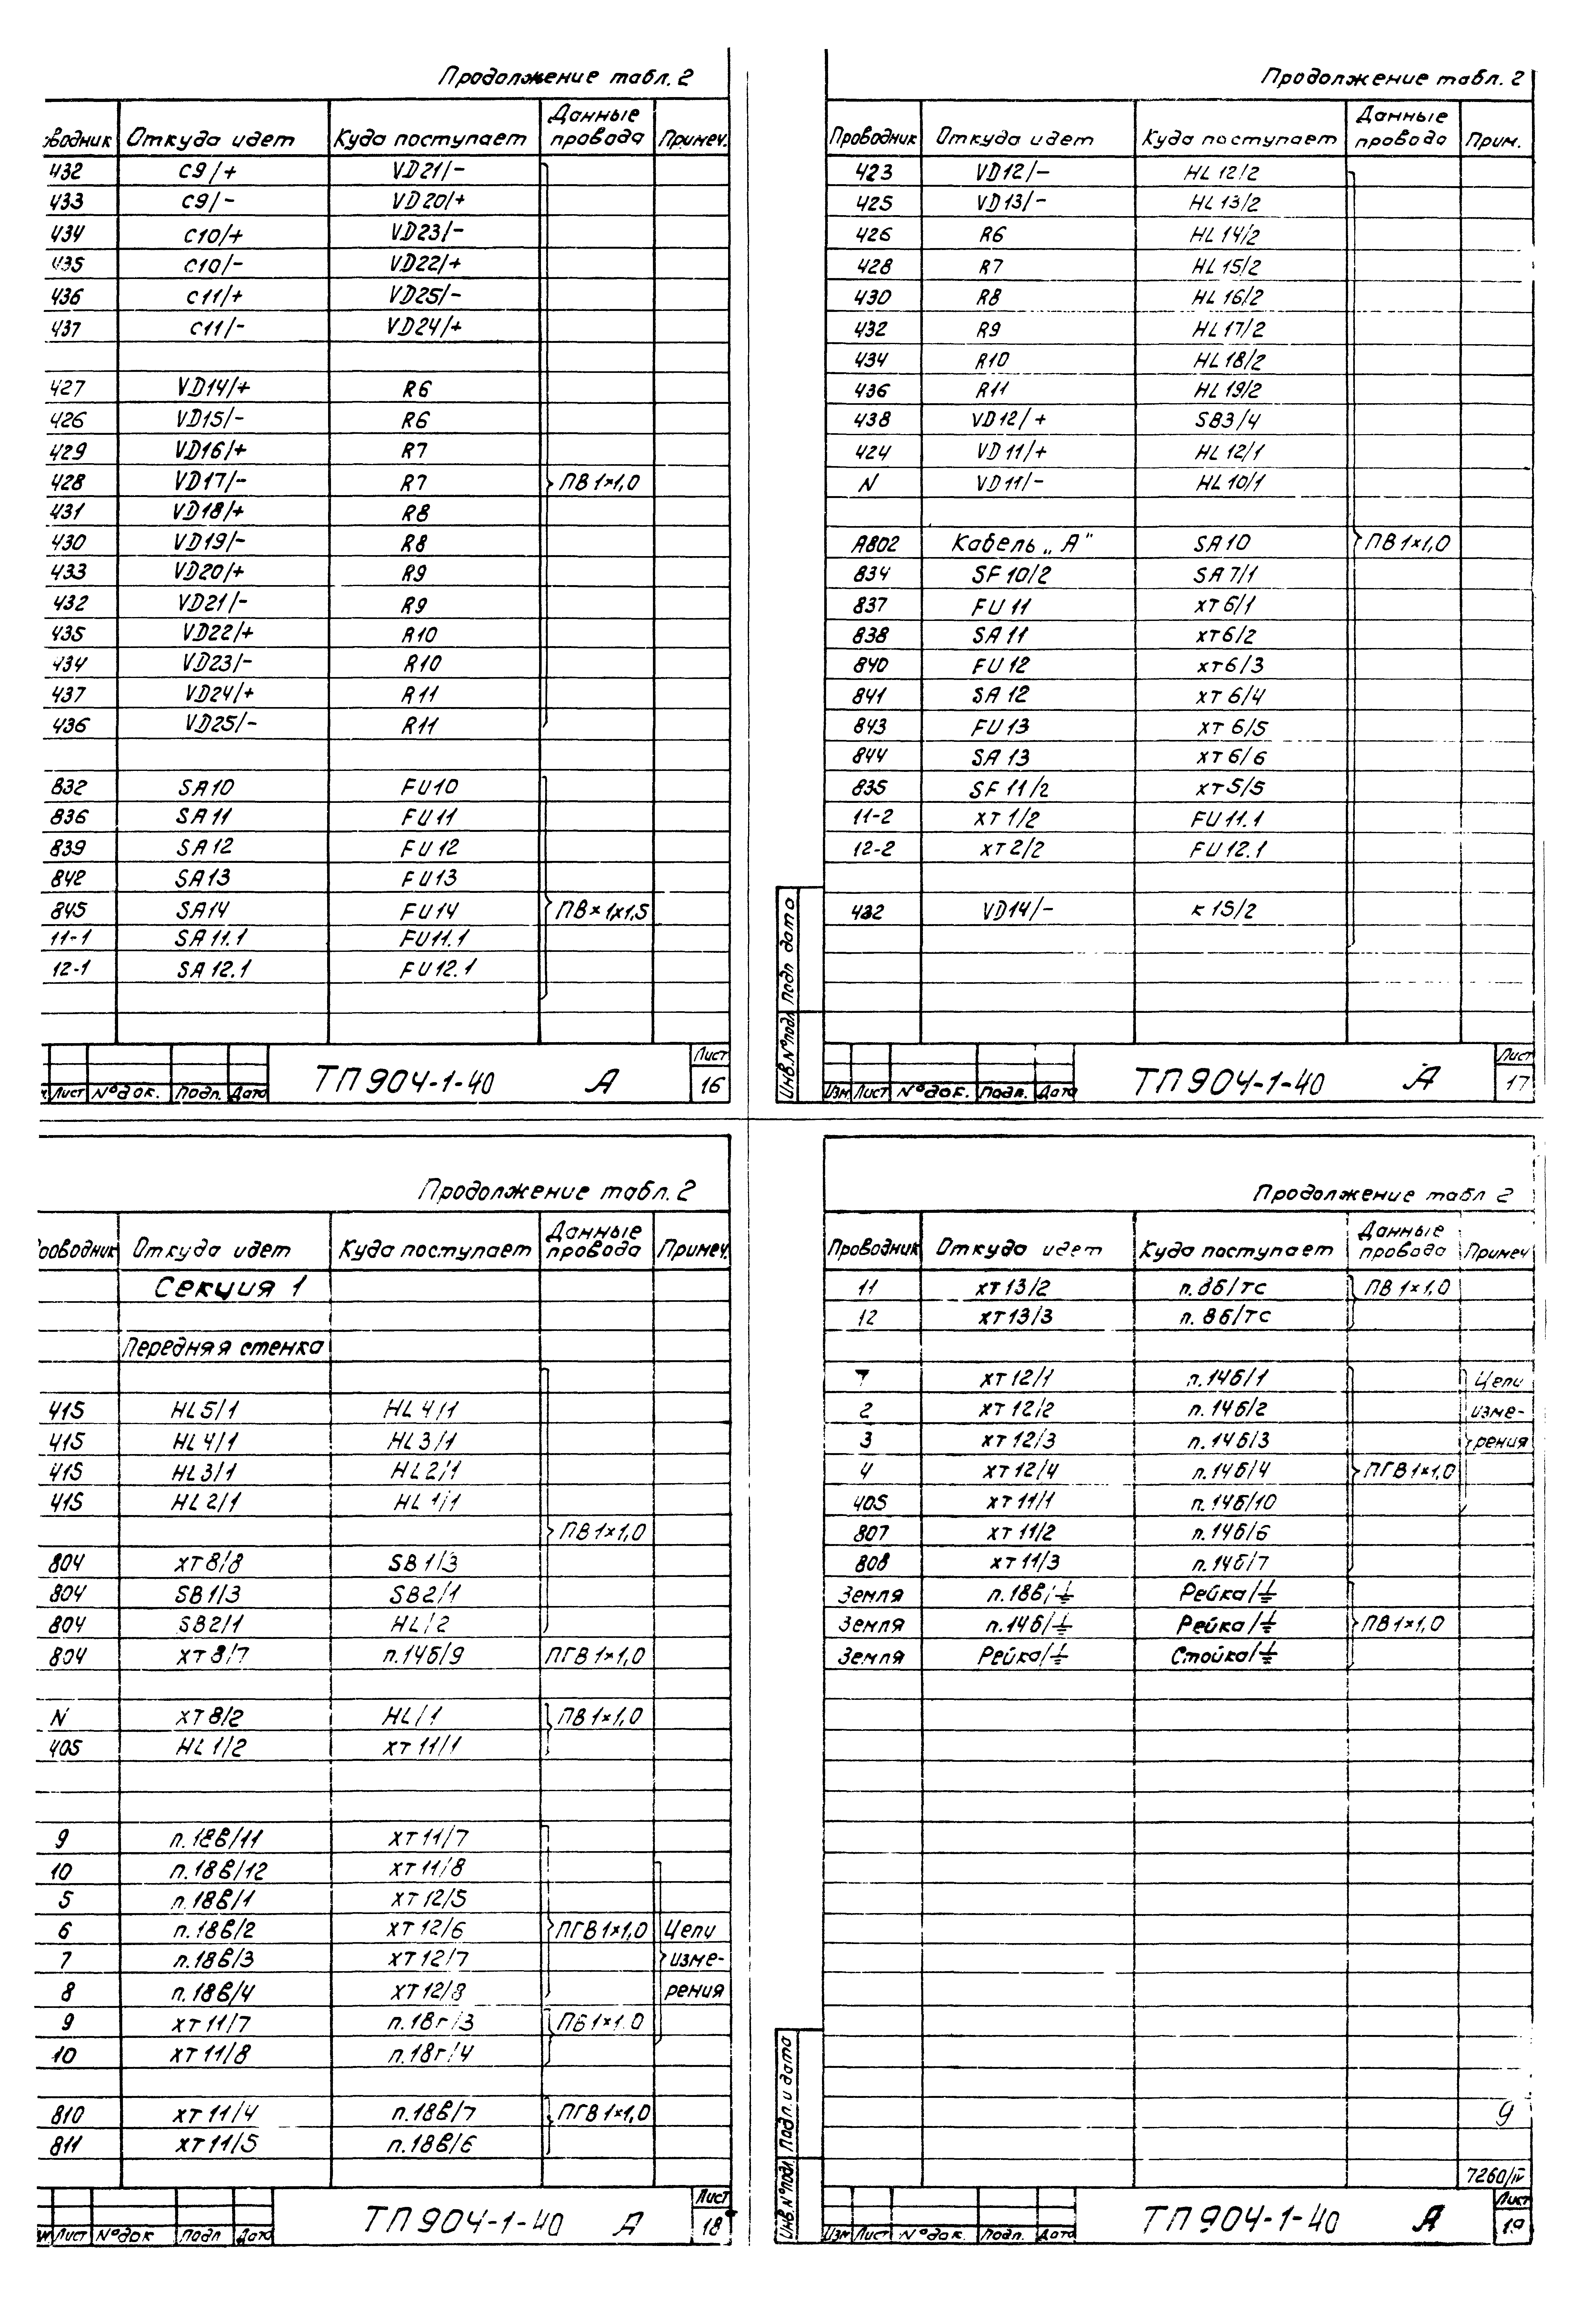 Продолжение табл. 2
Проводник Откуда идет Куда поступает Данные провода Примеч.
432 C9/+ VD21/-
433 C9/- VD20/+
434 C10/+ VD23/-
435 C10/- VD22/+
436 C11/+ VD25/-
437 C11/- VD24/+
427 VD14/+ R6
426 VD15/- R6
429 VD16/+ R7
428 VD17/- R7 ПВ 1×1,0
431 VD18/+ R8
430 VD19/- R8
433 VD20/+ R9
432 VD21/- R9
435 VD22/+ R10
434 VD23/- R10
437 VD24/+ R11
436 VD25/- R11
832 SA10 FU10
836 SA11 FU11
839 SA12 FU12
842 SA13 FU13
845 SA14 FU14 ПВ×1×1,5
11-1 SA11.1 FU11.1
12-1 SA12.1 FU12.1
Лист № док. Подп. Дата ТП 904-1-40 А Лист 16
Продолжение табл. 2
Проводник Откуда идет Куда поступает Данные провода Прим.
423 VD12/- HL12/2
425 VD13/- HL13/2
426 R6 HL14/2
428 R7 HL15/2
430 R8 HL16/2
432 R9 HL17/2
434 R10 HL18/2
436 R11 HL19/2
438 VD12/+ SB3/4
424 VD11/+ HL12/1
N VD11/- HL10/1
A802 Кабель „А" SA10 ПВ 1×1,0
834 SF10/2 SA7/1
837 FU11 XT6/1
838 SA11 XT6/2
840 FU12 XT6/3
841 SA12 XT6/4
843 FU13 XT6/5
844 SA13 XT6/6
835 SF11/2 XT5/5
11-2 XT1/2 FU11.1
12-2 XT2/2 FU12.1
432 VD14/- K15/2
Инв.№ подл Подп дата
Изм Лист № док. Подп. Дата ТП 904-1-40 А Лист 17
Продолжение табл. 2
Проводник Откуда идет Куда поступает Данные провода Примеч.
Секция 1
Передняя стенка
415 HL5/1 HL4/1
415 HL4/1 HL3/1
415 HL3/1 HL2/1
415 HL2/1 HL1/1
ПВ 1×1,0
804 XT8/8 SB1/3
804 SB1/3 SB2/1
804 SB2/1 HL/2
804 XT8/7 п.14б/9 ПГВ 1×1,0
N XT8/2 HL/1 ПВ 1×1,0
405 HL1/2 XT11/1
9 п.18в/11 XT11/7
10 п.18в/12 XT11/8
5 п.18в/1 XT12/5
6 п.18в/2 XT12/6 ПГВ 1×1,0 Цепи
7 п.18в/3 XT12/7 изме-
8 п.18в/4 XT12/8 рения
9 XT11/7 п.18г/3 ПБ 1×1.0
10 XT11/8 п.18г/4
810 XT11/4 п.18в/7 ПГВ 1×1,0
811 XT11/5 п.18в/6
Лист № док Подп Дата ТП 904-1-40 А Лист 18
Продолжение табл 2
Проводник Откуда идет Куда поступает Данные провода Примеч
11 XT13/2 п.8б/ТС ПВ 1×1,0
12 XT13/3 п.8б/ТС
XT12/1 п.14б/1 Цепи
2 XT12/2 п.14б/2 изме-
3 XT12/3 п.14б/3 рения
4 XT12/4 п.14б/4 ПГВ 1×1,0
405 XT11/1 п.14б/10
807 XT11/2 п.14б/6
808 XT11/3 п.14б/7
Земля п.18в/⏚ Рейка/⏚
Земля п.14б/⏚ Рейка/⏚ ПВ 1×1,0
Земля Рейка/⏚ Стойка/⏚
9
7260/IV
Инв.№ подл. Подп. и дата
Изм Лист № док. Подп. Дата ТП 904-1-40 А Лист 19